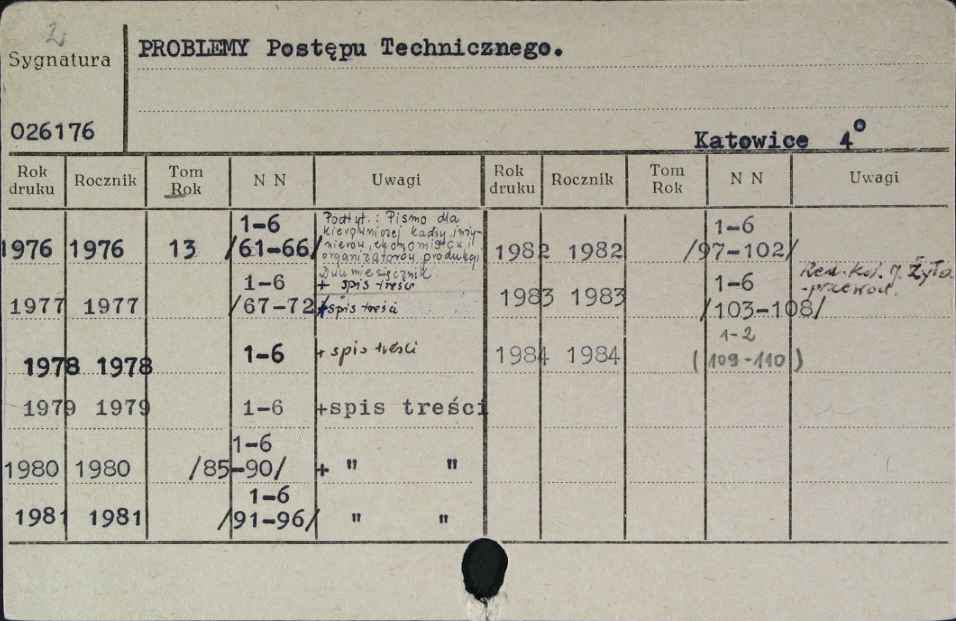 2
PROBLEMY Postępu Technicznego.
Sygnatura
026176
Katowice 4°
Rok druku Rocznik Tom Rok N N Uwagi Rok druku Rocznik Tom Rok N N Uwagi
1976 1976 13 1-6 /61-66/ Podtyt.: Pismo dla
kierowniczej kadry, inży-
nierów, ekonomistów i
organizatorów produkcji
Dwumiesięcznik
+ spis treści
1977 1977 1-6 /67-72/ + spis treści
1978 1978 1-6 + spis treści
1979 1979 1-6 +spis treści
1980 1980 1-6 /85-90/ + " "
1981 1981 1-6 /91-96/ " "
1982 1982 1-6 /97-102/
1983 1983 1-6 /103-108/ Red. kol. J. Żyła
-przewod.
1984 1984 1-2 (109-110)